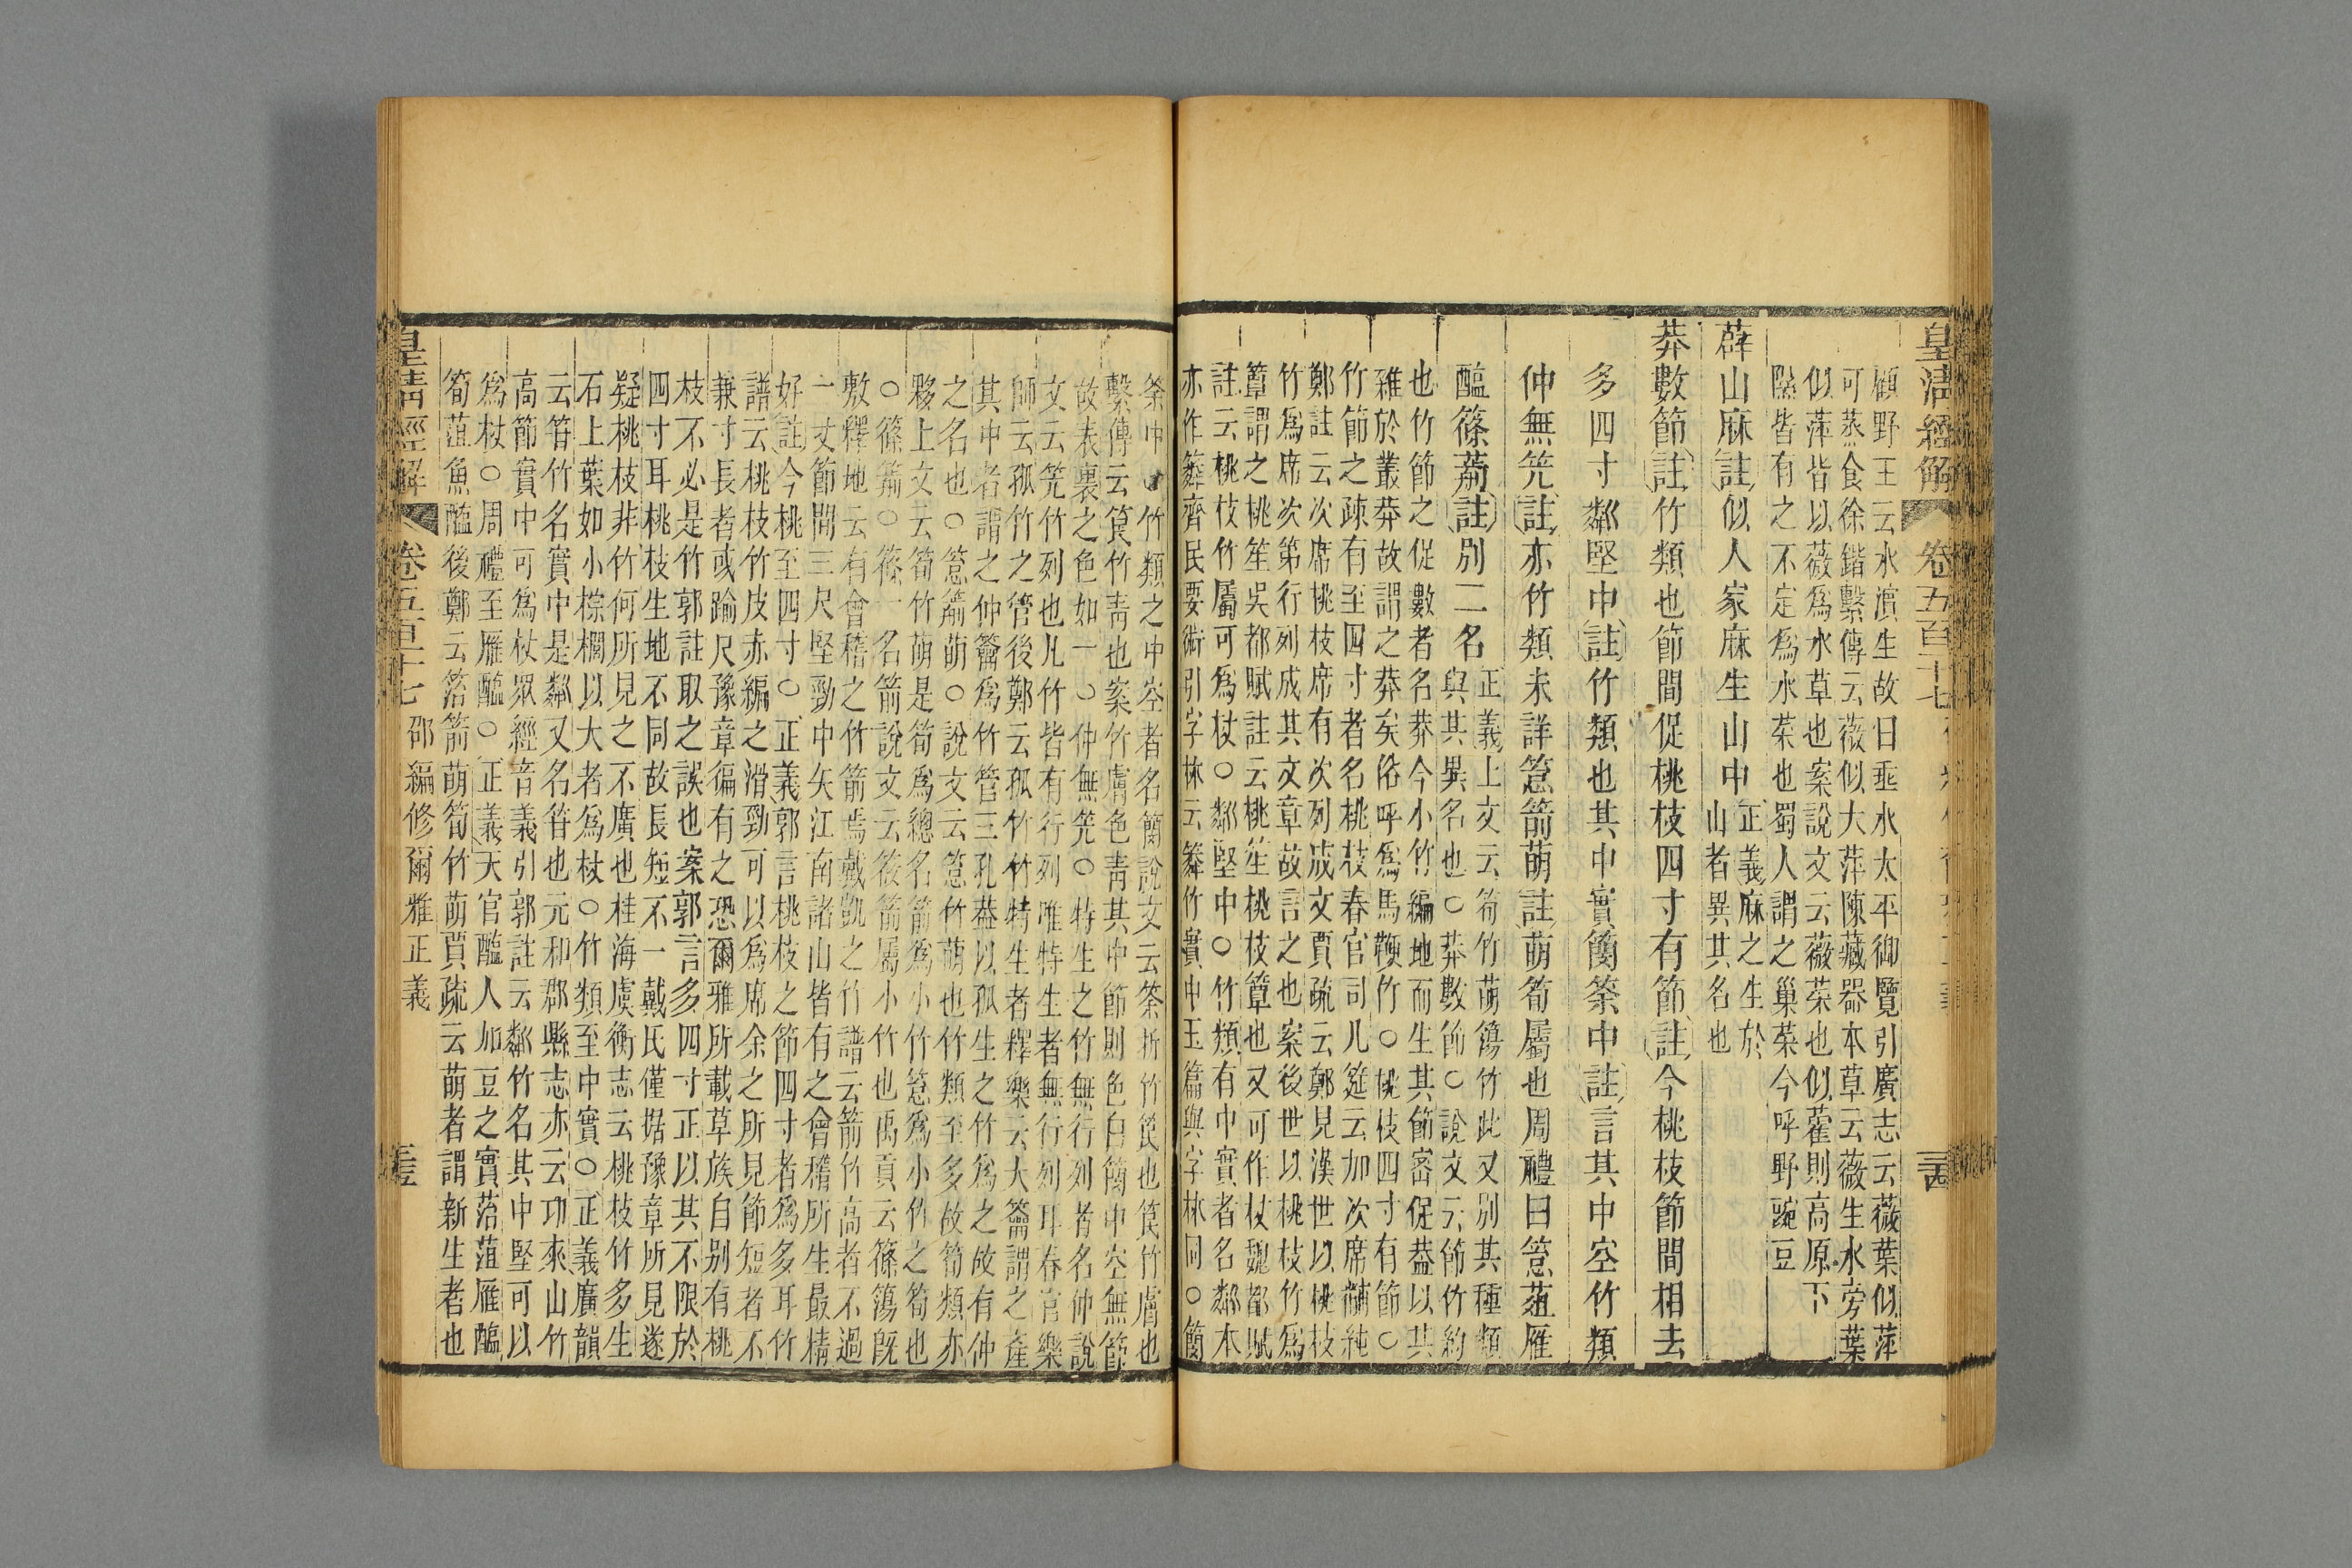 皇清經解 卷五百十七
顧野王云水濱生故曰垂水太平御覽引廣志云薇葉似萍
可蒸食徐鍇繫傳云薇似大萍陳藏器本草云薇生水旁葉
似萍皆以薇爲水草也案說文云薇菜也似藿則高原下
隰皆有之不定爲水菜也蜀人謂之巢菜今呼野豌豆
薜山麻註似人家麻生山中正義麻之生於
山者異其名也
莽數節註竹類也節間促桃枝四寸有節註今桃枝節間相去
多四寸粼堅中註竹類也其中實簢筡中註言其中空竹類
仲無笐註亦竹類未詳䈚箭萌註萌筍屬也周禮曰䈚菹雁
醢篠䉛註別二名正義上文云筍竹萌簜竹此又別其種類
與其異名也○莽數節○說文云節竹約
也竹節之促數者名莽今小竹編地而生其節密促蓋以其
雜於叢莽故謂之莽矣俗呼爲馬鞭竹○桃枝四寸有節○
竹節之疎有至四寸者名桃枝春官司几筵云加次席黼純
鄭註云次席桃枝席有次列成文賈疏云鄭見漢世以桃枝
竹爲席次第行列成其文章故言之也案後世以桃枝竹爲
簟謂之桃笙吳都賦註云桃笙桃枝簟也又可作杖魏都賦
註云桃枝竹屬可爲杖○粼堅中○竹類有中實者名粼本
亦作䉲齊民要術引字林云䉲竹實中玉篇與字林同○簢
筡中○竹類之中空者名簢說文云筡折竹笢也笢竹膚也
繫傳云笢竹靑也案竹膚色靑其中節則色白簢中空無節
故表裏之色如一○仲無笐○特生之竹無行列者名仲說
文云笐竹列也凡竹皆有行列唯特生者無行列耳春官樂
師云孤竹之管後鄭云孤竹竹特生者釋樂云大籥謂之產
其中者謂之仲籥爲竹管三孔蓋以孤生之竹爲之故有仲
之名也○䈚箭萌○說文云䈚竹萌也竹類至多故筍類亦
夥上文云筍竹萌是筍爲總名箭爲小竹䈚爲小竹之筍也
○篠䉛○篠一名箭說文云筱箭屬小竹也禹貢云篠簜旣
敷釋地云有會稽之竹箭焉戴凱之竹譜云箭竹高者不過
一丈節間三尺堅勁中矢江南諸山皆有之會稽所生最精
好註今桃至四寸○正義郭言桃枝之節四寸者爲多耳竹
譜云桃枝竹皮赤編之滑勁可以爲席余之所見節短者不
兼寸長者或踰尺豫章徧有之恐爾雅所載草族自別有桃
枝不必是竹郭註取之誤也案郭言多四寸正以其不限於
四寸耳桃枝生地不同故長短不一戴氏僅据豫章所見遂
疑桃枝非竹何所見之不廣也桂海虞衡志云桃枝竹多生
石上葉如小椶櫚以大者爲杖○竹類至中實○正義廣韻
云䈔竹名實中是粼又名䈔也元和郡縣志亦云邛來山竹
高節實中可爲杖眾經音義引郭註云粼竹名其中堅可以
爲杖○周禮至雁醢○正義天官醢人加豆之實箈菹雁醢
筍菹魚醢後鄭云箈箭萌筍竹萌賈疏云萌者謂新生者也
皇清經解 卷五百十七 邵編修爾雅正義